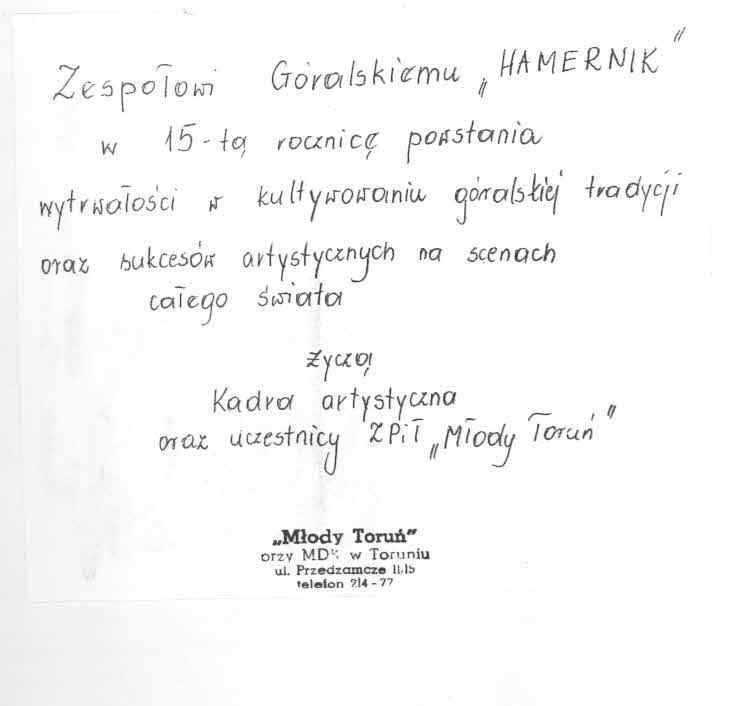 Zespołowi Góralskiemu „HAMERNIK”
w 15-tą rocznicę powstania
wytrwałości w kultywowaniu góralskiej tradycji
oraz sukcesów artystycznych na scenach
całego świata
życzą
Kadra artystyczna
oraz uczestnicy ZPiT „Młody Toruń”
„Młody Toruń”
przy MDK w Toruniu
ul. Przedzamcze 11/15
telefon 214-77